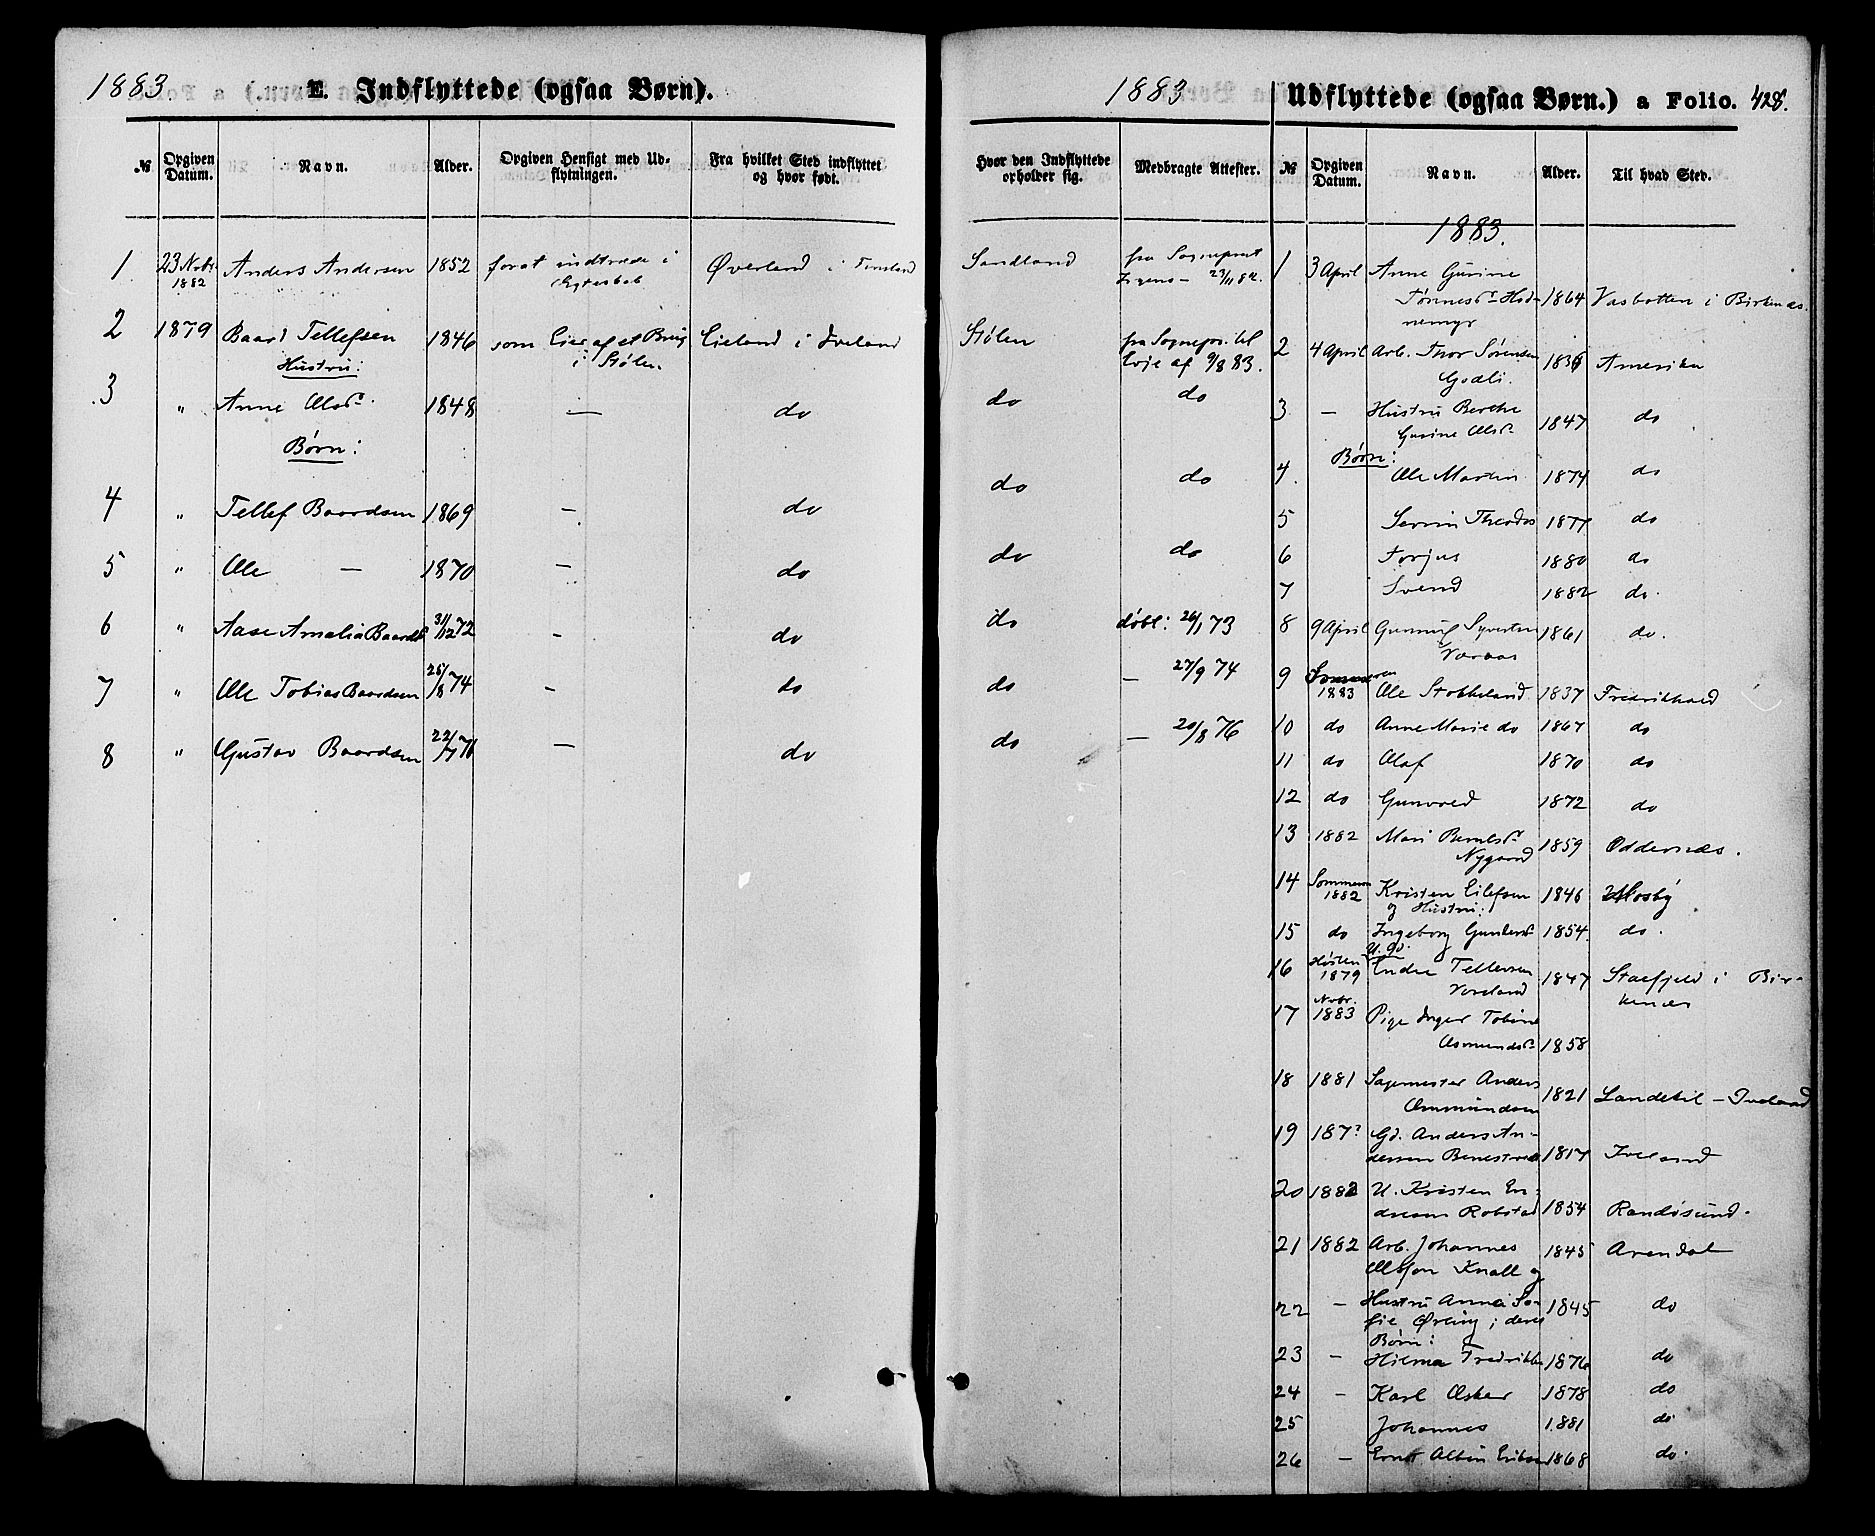 1883. E. Indflyttede (ogsaa Børn).
№ Opgiven Datum. Navn. Alder. Opgiven Hensigt med Udflytningen. Fra hvilket Sted indflyttet og hvor født.
1 23 Novbr. 1882 Anders Andersen 1852 forat indtræde i Egteskab Øverland i
2 1879 Baard Tellefsen 1846 som Eier af et Brug i Stølen Eieland i Iveland
Hustru:
3 " Anne Olsdr. 1848 — do
Børn:
4 " Tellef Baardsen 1869 — do
5 " Ole — 1870 — do
6 " Aase Amalia Baardsd 31/12 72 - do
7 " Ole Tobias Baardsen 25/8 74 - do
8 " Gustav Baardsen 22/7 76 — do
1883 Udflyttede (ogsaa Børn.) a Folio. 428.
Hvor den Indflyttede opholder sig. Medbragte Attester.
Sandland fra Sogneprest 23/11 82.
Stølen fra Sognepr. til Evje af 9/8 83.
do do
do do
do do
do døbt: 26/1 73
do — 27/9 74
do — 20/8 76
№ Opgiven Datum. Navn. Alder. Til hvad Sted.
1883.
1 3 April Anne Gurine
Tønnesdr. 1864 Vasbotten i Birkenæs.
2 4 April Arb. Thor Sørensen
Godli. 1836 Amerika
3 — Hustru Berthe
Gurine Olsdr 1847 do
Børn:
4. Ole Martin 1874 do
5 Theodor 1877 do
6 Torjus 1880 do
7 Svend 1882 do.
8 9 April Syvertsen 1861 do.
9 Sommeren
1883 Ole Stokkeland 1837 Fredrikhald
10 do Anne Marie do 1867 do
11 do Olaf 1870 do
12 do Gunvald 1872 do
13 1882 Mari
Nygaard 1859 Oddernæs.
14 Sommeren
1882 Kristen Eilefsen 1846 Mosby
og Hustru:
15 do Ingeborg Gundersd 1854. do.
16 Høsten
1879 Endre Tellevsen 1847 i Bir-
kenæs
17 Novbr.
1883 Pige Inger Tobine
Asmundsdr 1858
18 1881 Sagmester Anders
Ommundsen 1821 Landetil - Iveland
19 187? Gd. Anders An-
dersen 1817 Iveland
20 1882 U. Kristen En-
dresen Robstad 1854 Randøsund.
21 1882 Arb. Johannes 1845 Arendal
Olsson Knall og
22 — Hustru Anna So- 1845 do
fie ; deres
Børn:
23 — Hilma Fredrikke 1876 do
24 — Karl Oskar 1878 do
25 Johannes 1881 do
26 — Ernst Albin 1868 do.